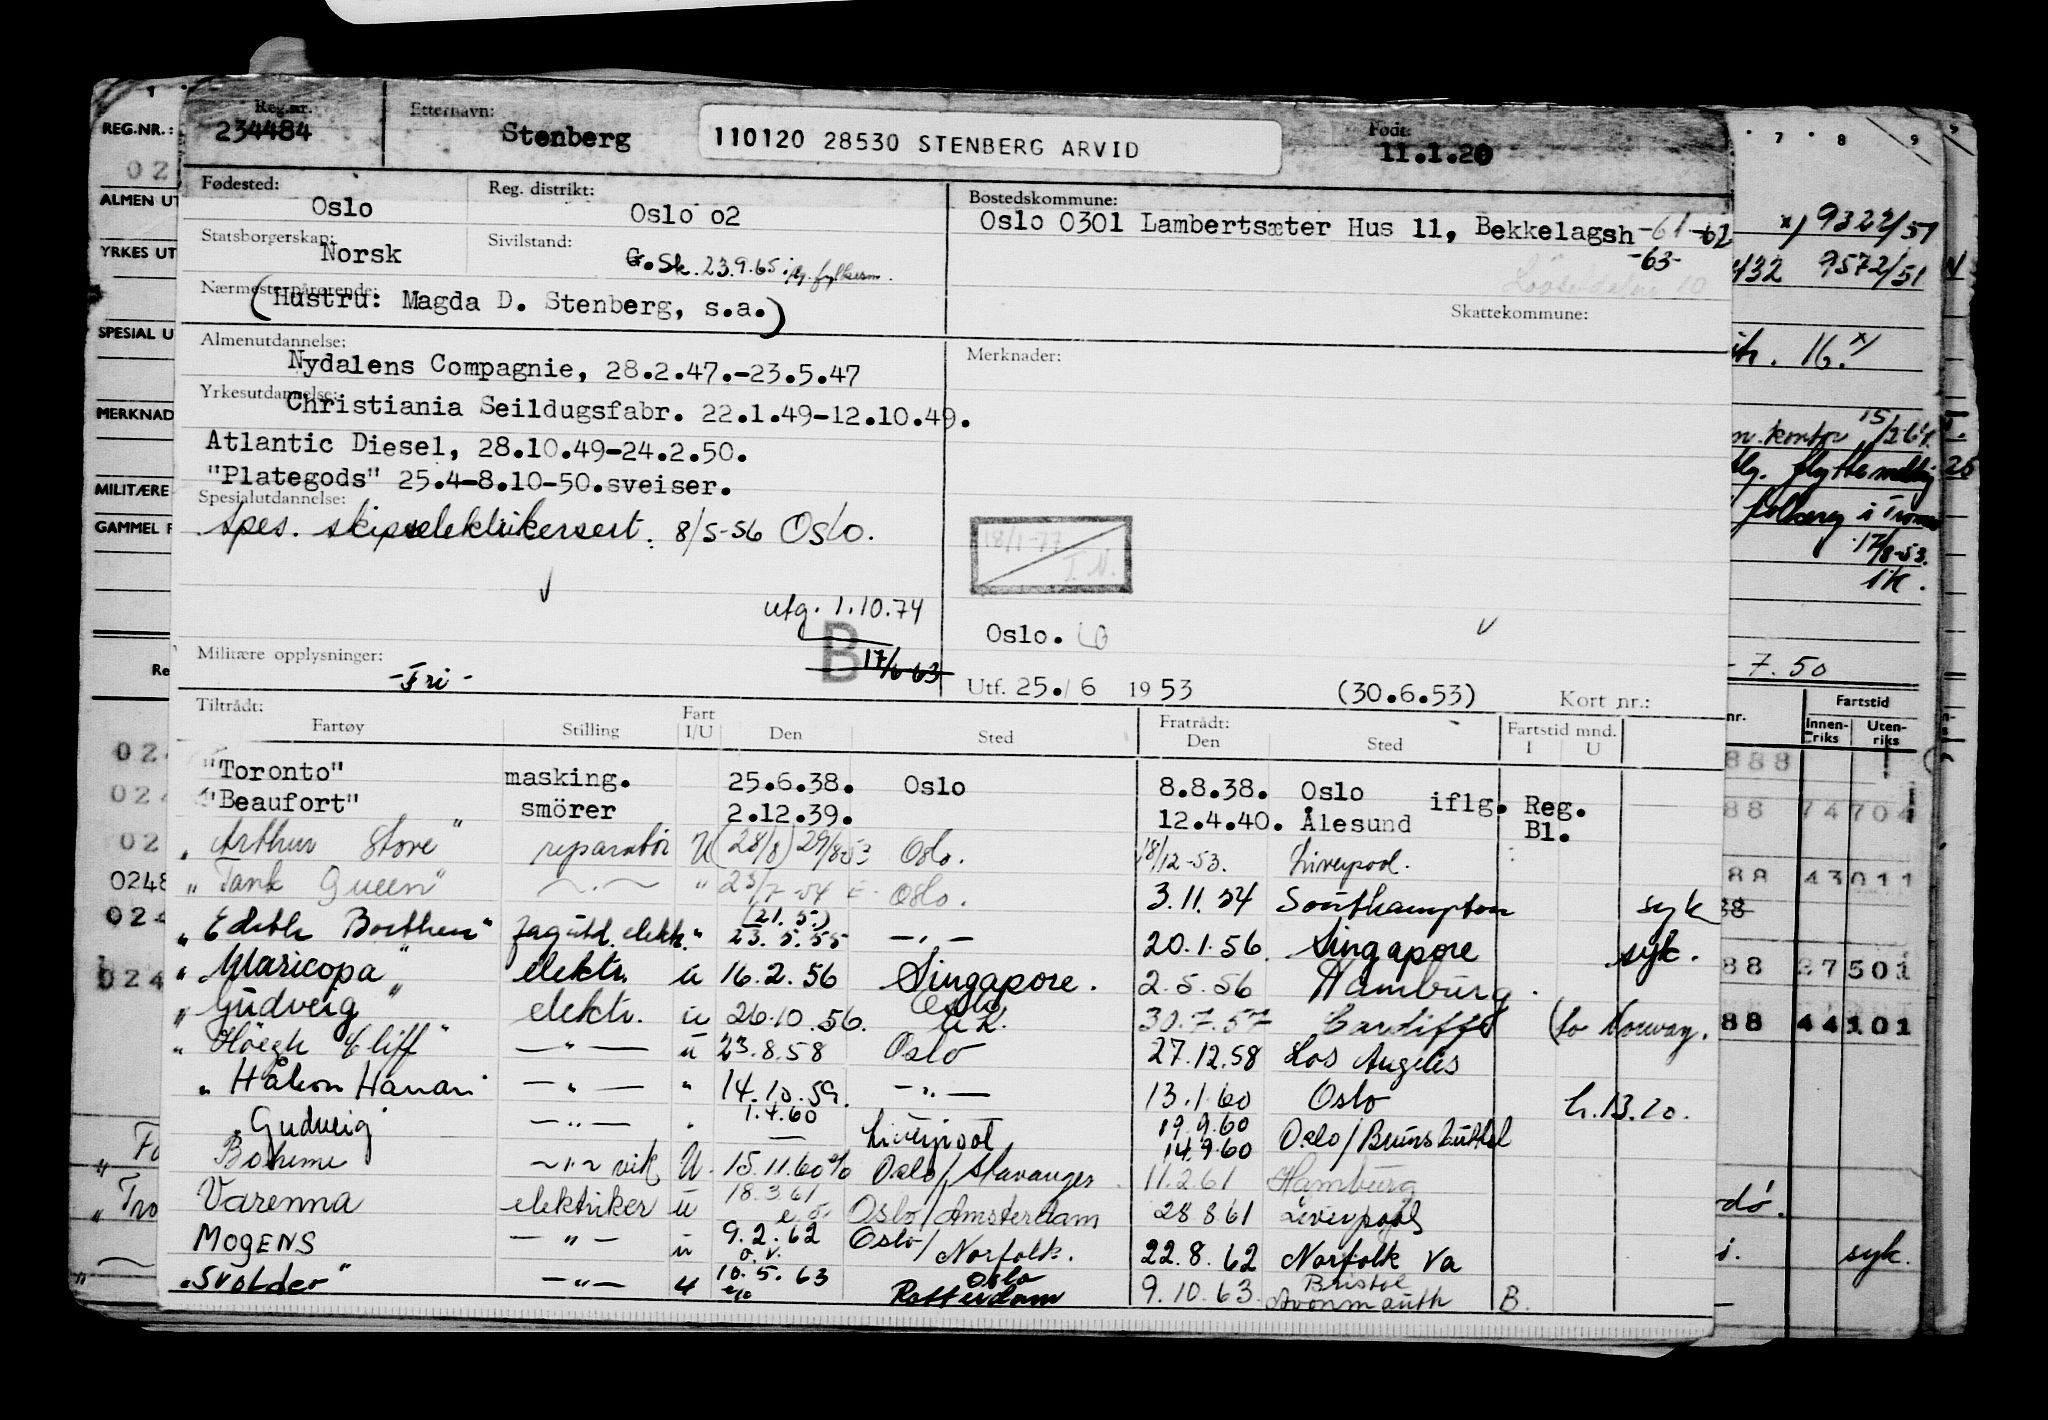 Reg.nr. Etternavn: Født:
234484 Stenberg 110120 28530 STENBERG ARVID 11.1.20
Fødested: Reg. distrikt: Bostedskommune:
Oslo Oslo 02 Oslo 0301 Lambertsæter Hus 11, Bekkelagsh -61-62
-63-
Statsborgerskap: Sivilstand:
Norsk G.Sk. 23.9.65
Nærmeste pårørende:
(Hustru: Magda D. Stenberg, s.a.)
Skattekommune:
Almenutdannelse: Merknader:
Nydalens Compagnie, 28.2.47.-23.5.47
Yrkesutdannelse:
Christiania Seildugsfabr. 22.1.49-12.10.49.
Atlantic Diesel, 28.10.49-24.2.50.
"Plategods" 25.4-8.10-50.sveiser.
Spesialutdannelse:
Spes. skipselektrikersert. 8/5-56 Oslo.
18/1-77
T.N.
utg. 1.10.74
B 17/6 63
Oslo.
Militære opplysninger:
-Fri-
Utf. 25./6 1953 (30.6.53) Kort nr.:
Tiltrådt: Fratrådt:
Fartøy Stilling Fart I/U Den Sted Den Sted Fartstid mnd. I U
"Toronto" masking. 25.6.38. Oslo 8.8.38. Oslo
"Beaufort" smörer 2.12.39. 12.4.40. Ålesund iflg. Reg. Bl.
"Arthur Stove" reparatör U (28/8) 29/8-53 Oslo. 18/12-53. Liverpool.
"Tank Queen" —.— " 23/7-54 Oslo. 3.11.54 Southampton syk
"Edith Borthen" fagutd. elektr. " (21.5) 23.5.55 —"— 20.1.56. Singapore syk.
"Maricopa" elektr. u 16.2.56 Singapore. 2.5.56 Hamburg.
"Gudveig" elektr. u 26.10.56. Oslo 30.7.57 Cardiff (to Norway.
"Höegh Cliff" —"— u 23.8.58 Oslo 27.12.58 Los Angeles
"Håkon Hauan —"— " 14.10.59. —"— 13.1.60 Oslo
"Gudveig —"— " 1.4.60 — Liverpool 19.9.60 14.9.60 Oslo/Brunsbüttel
Boheme —"— vik U. 15.11.60 Oslo/Stavanger 11.2.61 Hamburg
Varenna elektriker u 18.3.61 Oslo/Amsterdam 28 8.61 Liverpool
MOGENS —"— u 9.2.62 Oslo/Norfolk. 22.8.62 Norfolk Va
"Svolder" —"— u 10.5.63 Oslo Rotterdam 9.10.63. Bristol Avonmouth B.
REG.NR.:
02
ALMEN UT
YRKES UT
SPESIAL U
MERKNAD
MILITÆRE
GAMMEL F
Re
024
024
02
0248
024
024
7 8 9
x) 9322/51
432 9572/51
16. x)
15/2-61.
17/8-53.
- 7.50
nr. Fartstid
Innenriks Utenriks
888
88 74704
88 43011
88 27501
88 44101
syk.